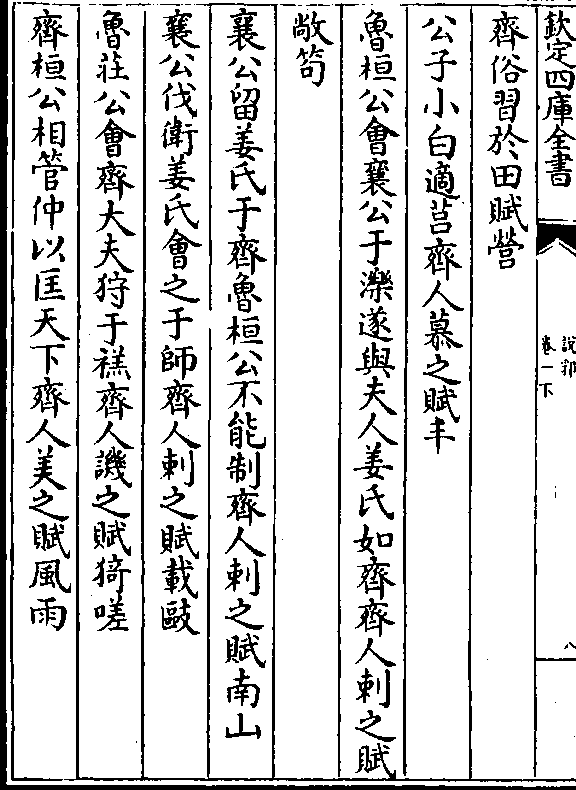 欽定四庫全書
說郛
卷一下
八
齊俗習於田賦營
公子小白適莒齊人慕之賦丰
魯桓公會襄公于濼遂與夫人姜氏如齊齊人刺之賦
敝笱
襄公留姜氏于齊魯桓公不能制齊人刺之賦南山
襄公伐衛姜氏會之于師齊人刺之賦載敺
魯莊公會齊大夫狩于禚齊人譏之賦猗嗟
齊桓公相管仲以匡天下齊人美之賦風雨